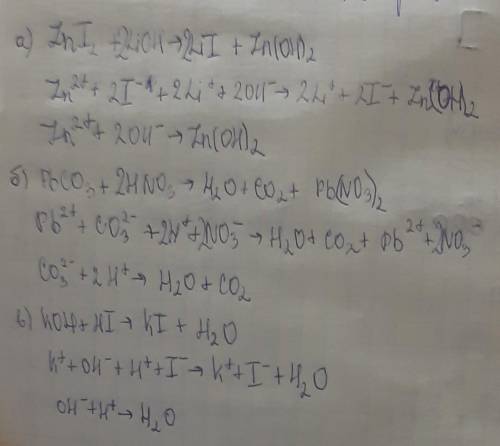 а) ZnI₂ + 2LiOH → 2LiI + Zn(OH)₂
Zn²⁺ + 2I⁻ + 2Li⁺ + 2OH⁻ → 2Li⁺ + 2I⁻ + Zn(OH)₂
Zn²⁺ + 2OH⁻ → Zn(OH)₂
б) PbCO₃ + 2HNO₃ → H₂O + CO₂ + Pb(NO₃)₂
Pb²⁺ + CO₃²⁻ + 2H⁺ + 2NO₃⁻ → H₂O + CO₂ + Pb²⁺ + 2NO₃⁻
CO₃²⁻ + 2H⁺ → H₂O + CO₂
в) KOH + HI → KI + H₂O
K⁺ + OH⁻ + H⁺ + I⁻ → K⁺ + I⁻ + H₂O
OH⁻ + H⁺ → H₂O